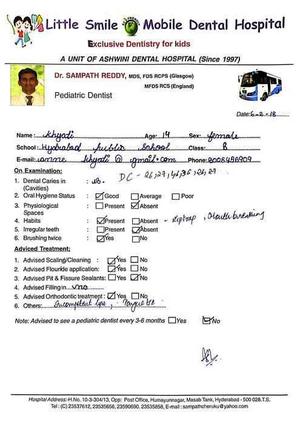 Little Smile Mobile Dental Hospital
Exclusive Dentistry for kids
A UNIT OF ASHWINI DENTAL HOSPITAL (Since 1997)
Dr. SAMPATH REDDY, MDS, FDS RCPS (Glasgow)
MFDS RCS (England)
Pediatric Dentist
Date: 6-2-18
Name: Khyati Age: 14 Sex: female
School: Hyderabad Public School Class: 8
E-mail: khyati@gmail.com Phone:
On Examination:
1. Dental Caries in (Cavities) :
2. Oral Hygiene Status : Good Average Poor
3. Physiological Spaces : Present Absent
4. Habits : Present Absent - Mouth breathing
5. Irregular teeth : Present Absent
6. Brushing twice : Yes No
Adviced Treatment:
1. Advised Scaling/Cleaning : Yes No
2. Advised Flouride application: Yes No
3. Advised Pit & Fissure Sealants: Yes No
4. Advised Filling in
5. Advised Orthodontic treatment : Yes No
6. Others: Incompetent lips,
Note: Advised to see a pediatric dentist every 3-6 months Yes No
Hospital Address: H.No. 10-3-304/13, Opp: Post Office, Humayunnagar, Masab Tank, Hyderabad - 500 028.T.S.
Tel: (C) 23537612, 23535656, 23590690, 23535858, E-mail : sampathcheruku@yahoo.com